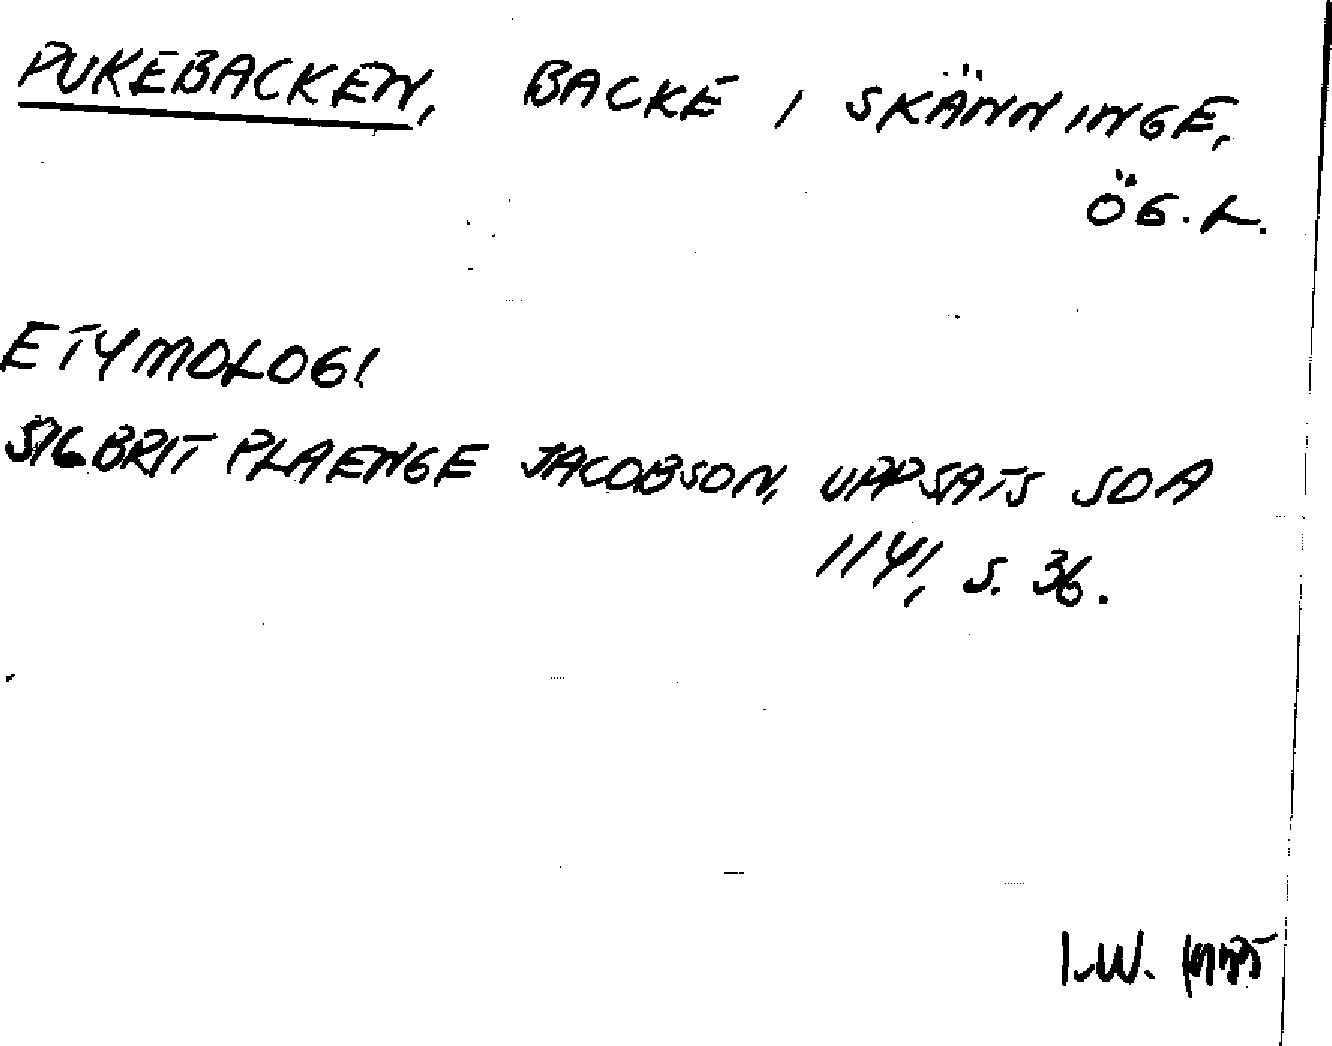 PUKEBACKEN, BACKE I SKÄNNINGE,
ÖG. L.
ETYMOLOGI
SIGBRIT PLAENGE JACOBSON, UPPSATS SOA
1141, S. 36.
I.W.